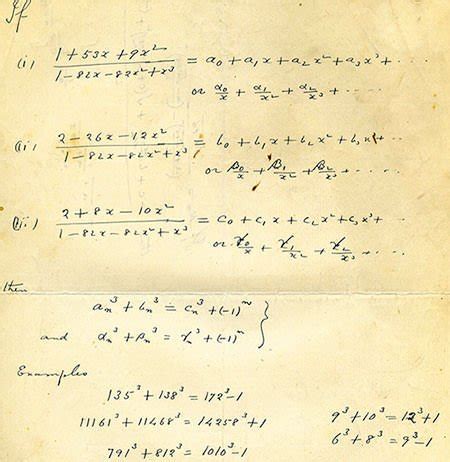 If
(i) (1 + 53x + 9x²)/(1 − 82x − 82x² + x³) = a₀ + a₁x + a₂x² + a₃x³ + ⋯
or α₀/x + α₁/x² + α₂/x³ + ⋯
(ii) (2 − 26x − 12x²)/(1 − 82x − 82x² + x³) = b₀ + b₁x + b₂x² + b₃x³ + ⋯
or β₀/x + β₁/x² + β₂/x³ + ⋯
(iii) (2 + 8x − 10x²)/(1 − 82x − 82x² + x³) = c₀ + c₁x + c₂x² + c₃x³ + ⋯
or γ₀/x + γ₁/x² + γ₂/x³ + ⋯
then
aₙ³ + bₙ³ = cₙ³ + (−1)ⁿ
and αₙ³ + βₙ³ = γₙ³ + (−1)ⁿ }
Examples
135³ + 138³ = 172³ − 1
9³ + 10³ = 12³ + 1
11161³ + 11468³ = 14258³ + 1
6³ + 8³ = 9³ − 1
791³ + 812³ = 1010³ − 1